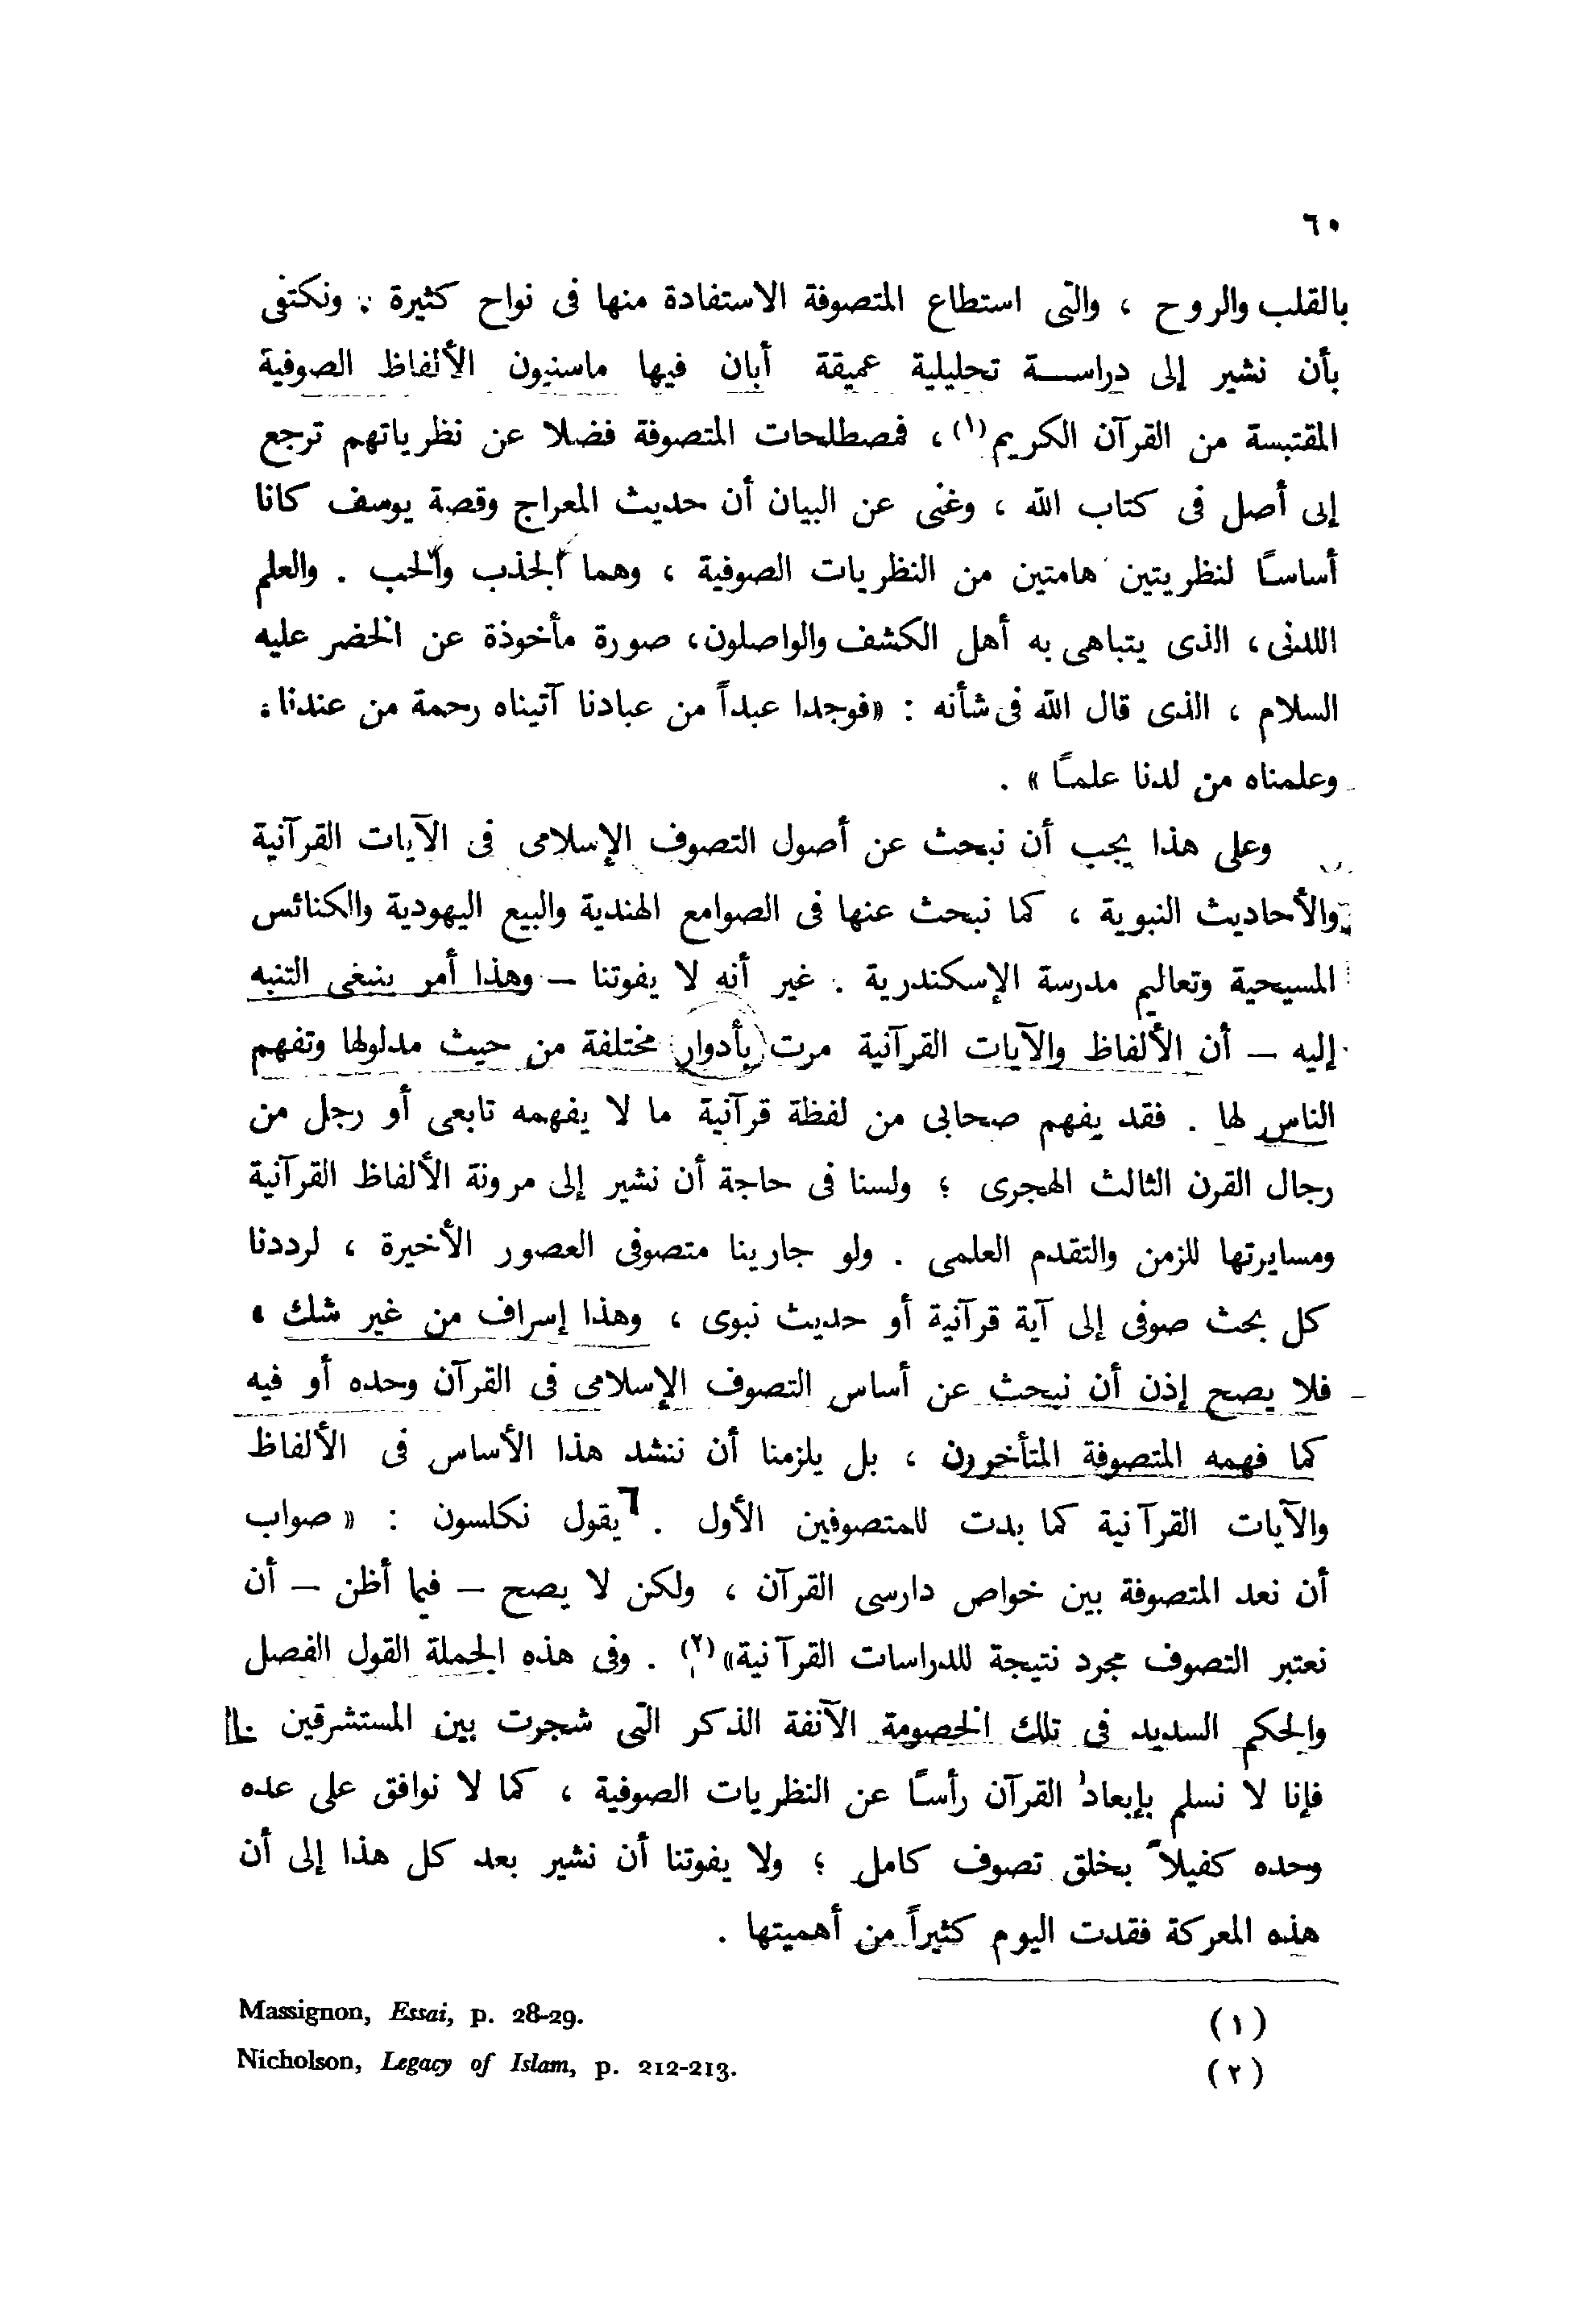 ٦٠
بالقلب والروح ، والتى استطاع المتصوفة الاستفادة منها فى نواح كثيرة . ونكتفى
بأن نشير إلى دراسة تحليلية عميقة أبان فيها ماسنيون الألفاظ الصوفية
المقتبسة من القرآن الكريم(١)، فمصطلحات المتصوفة فضلا عن نظرياتهم ترجع
إلى أصل فى كتاب الله ، وغنى عن البيان أن حديث المعراج وقصة يوسف كانا
أساسًا لنظريتين هامتين من النظريات الصوفية ، وهما الجذب والحب . والعلم
اللدنى، الذى يتباهى به أهل الكشف والواصلون، صورة مأخوذة عن الخضر عليه
السلام ، الذى قال الله فى شأنه : «فوجدا عبداً من عبادنا آتيناه رحمة من عندنا،
وعلمناه من لدنا علمًا » .
وعلى هذا يجب أن نبحث عن أصول التصوف الإسلامى فى الآيات القرآنية
والأحاديث النبوية ، كما نبحث عنها فى الصوامع الهندية والبيع اليهودية والكنائس
المسيحية وتعاليم مدرسة الإسكندرية . غير أنه لا يفوتنا – وهذا أمر ينبغى التنبه
إليه – أن الألفاظ والآيات القرآنية مرت بأدوار مختلفة من حيث مدلولها وتفهم
الناس لها . فقد يفهم صحابى من لفظة قرآنية ما لا يفهمه تابعى أو رجل من
رجال القرن الثالث الهجرى ؛ ولسنا فى حاجة أن نشير إلى مرونة الألفاظ القرآنية
ومسايرتها للزمن والتقدم العلمى . ولو جارينا متصوفى العصور الأخيرة ، لرددنا
كل بحث صوفى إلى آية قرآنية أو حديث نبوى ، وهذا إسراف من غير شك ،
فلا يصح إذن أن نبحث عن أساس التصوف الإسلامى فى القرآن وحده أو فيه
كما فهمه المتصوفة المتأخرون ، بل يلزمنا أن ننشد هذا الأساس فى الألفاظ
والآيات القرآنية كما بدت للمتصوفين الأول . يقول نكلسون : « صواب
أن نعد المتصوفة بين خواص دارسى القرآن ، ولكن لا يصح – فيما أظن – أن
نعتبر التصوف مجرد نتيجة للدراسات القرآنية»(٢) . وفى هذه الجملة القول الفصل
والحكم السديد فى تلك الخصومة الآنفة الذكر التى شجرت بين المستشرقين .
فإنا لا نسلم بإبعاد القرآن رأسًا عن النظريات الصوفية ، كما لا نوافق على عده
وحده كفيلاً بخلق تصوف كامل ؛ ولا يفوتنا أن نشير بعد كل هذا إلى أن
هذه المعركة فقدت اليوم كثيراً من أهميتها .
(١) Massignon, Essai, p. 28-29.
(٢) Nicholson, Legacy of Islam, p. 212-213.